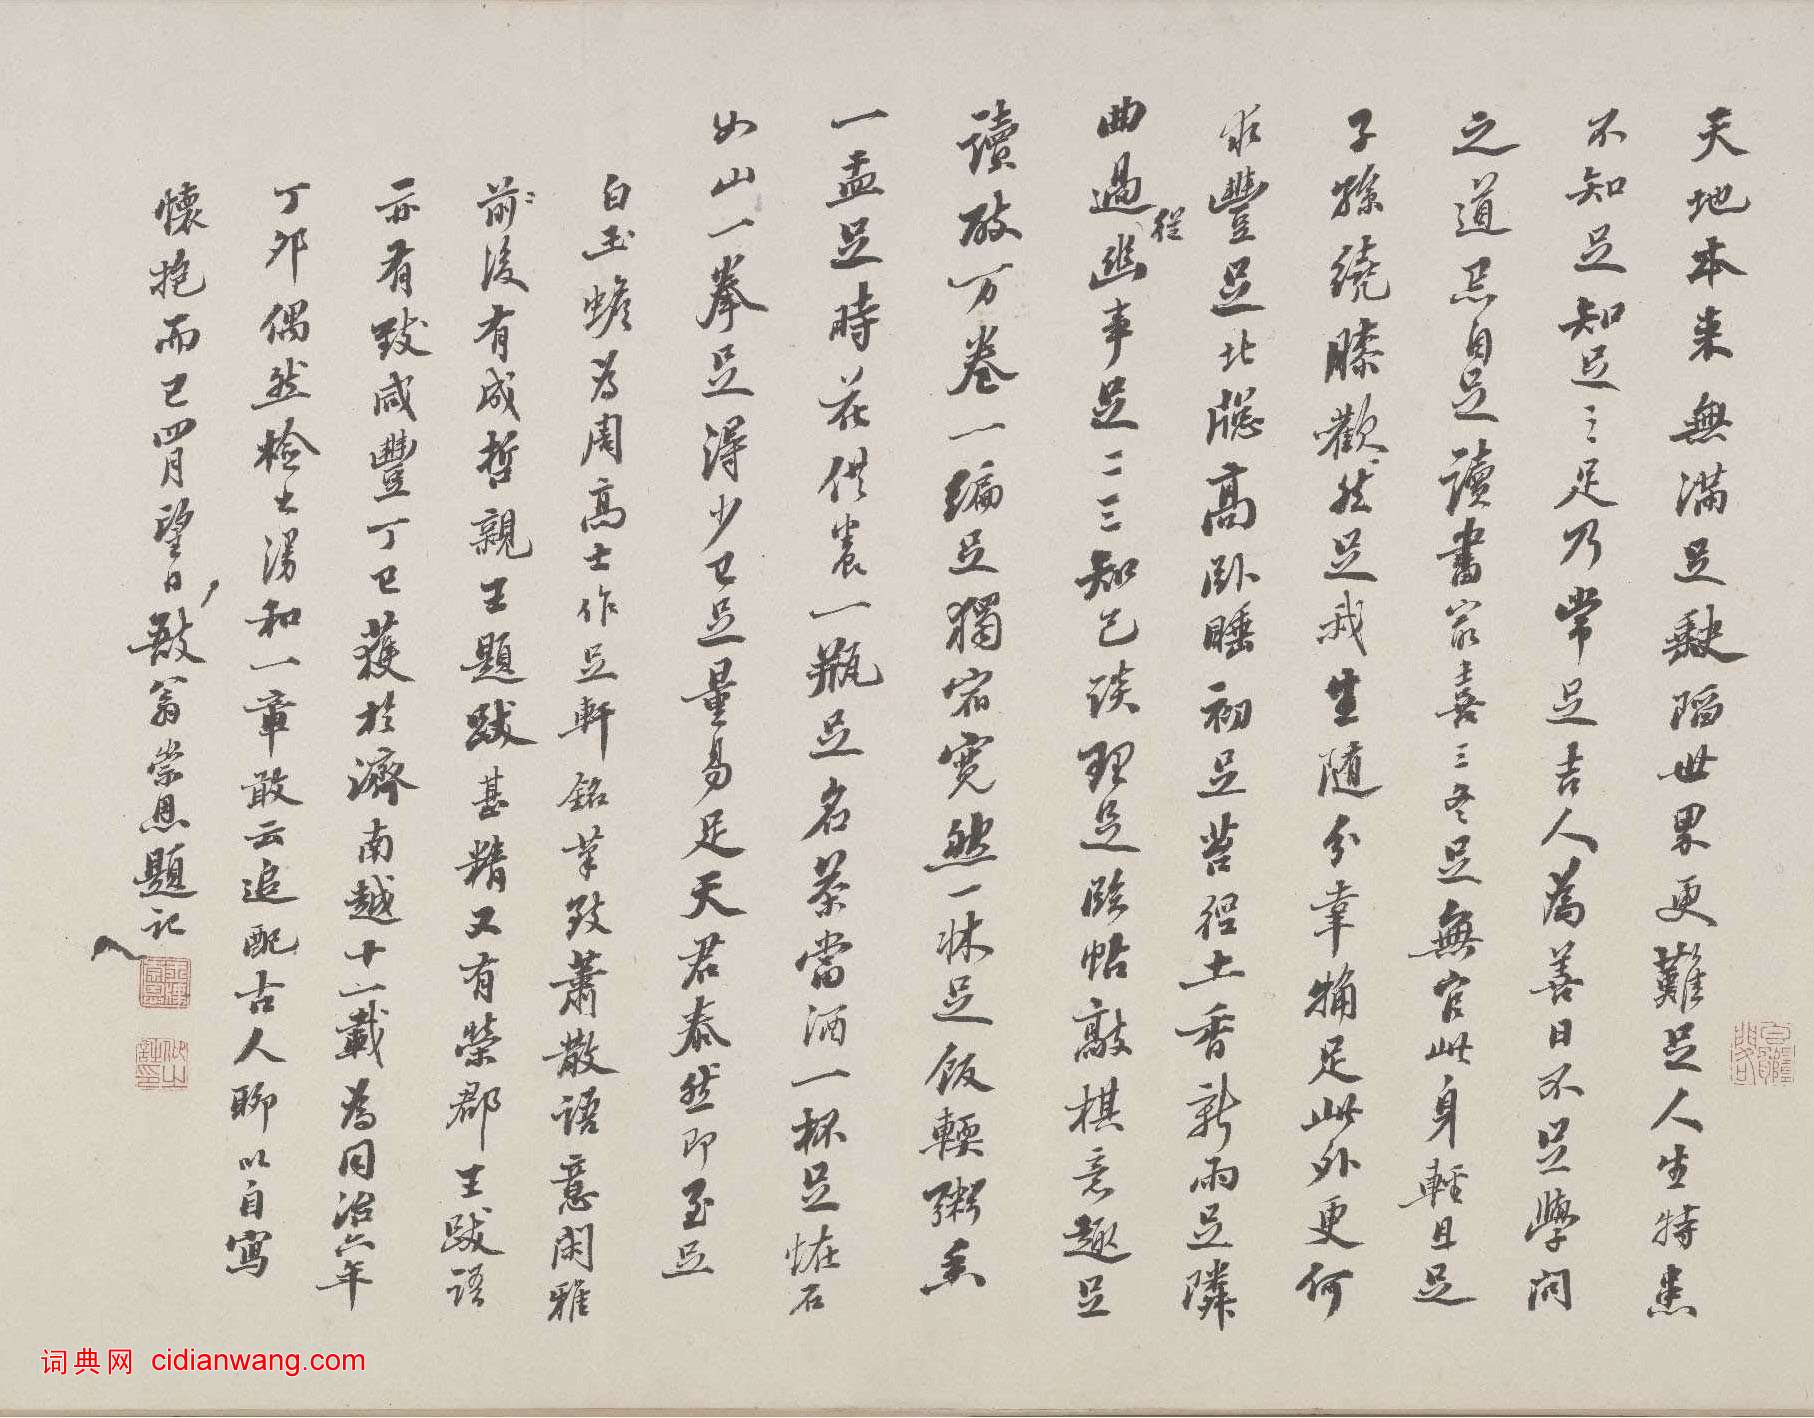 天地本来無滿足缺陷世界更難足人生特患
不知足知足〻足乃常足吉人為善日不足學問
之道忌自足讀書最喜三冬足無官此身輕且足
子孫繞膝歡然足我生随分辜犓足此外更何
求豐足北牕高卧睡初足苔徑土香新雨足隣
曲過從幽事足二三知己談理足臨帖敲棋意趣足
讀破万卷一編足獨宿寛然一牀足飯輭粥香
一盂足時花供養一瓶足名茶當酒一杯足怪石
如山一拳足得少已足量易足天君泰然即至足
白玉蟾為周高士作足軒銘筆致蕭散語意閑雅
前後有成哲親王題跋甚精又有榮郡王跋語
亦有致咸豐丁巳獲於濟南越十一載為同治六年
丁卯偶然檢出漫和一章敢云追配古人聊以自寫
懷抱而已四月望日敔翁崇恩題記
词典网 cidianwang.com